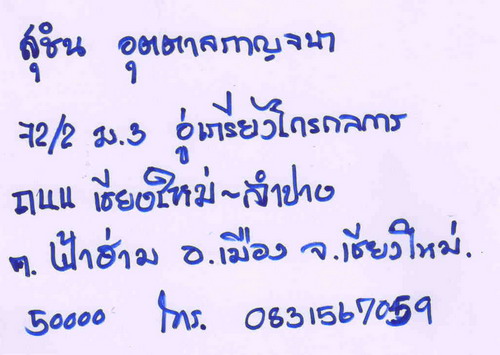 สุชิน อุตตาลกาญจนา
72/2 ม.3 อู่เกรียงไกรกลการ
ถนน เชียงใหม่~ลำปาง
ต. ฟ้าฮ่าม อ.เมือง จ.เชียงใหม่.
50000 โทร. 0831567059